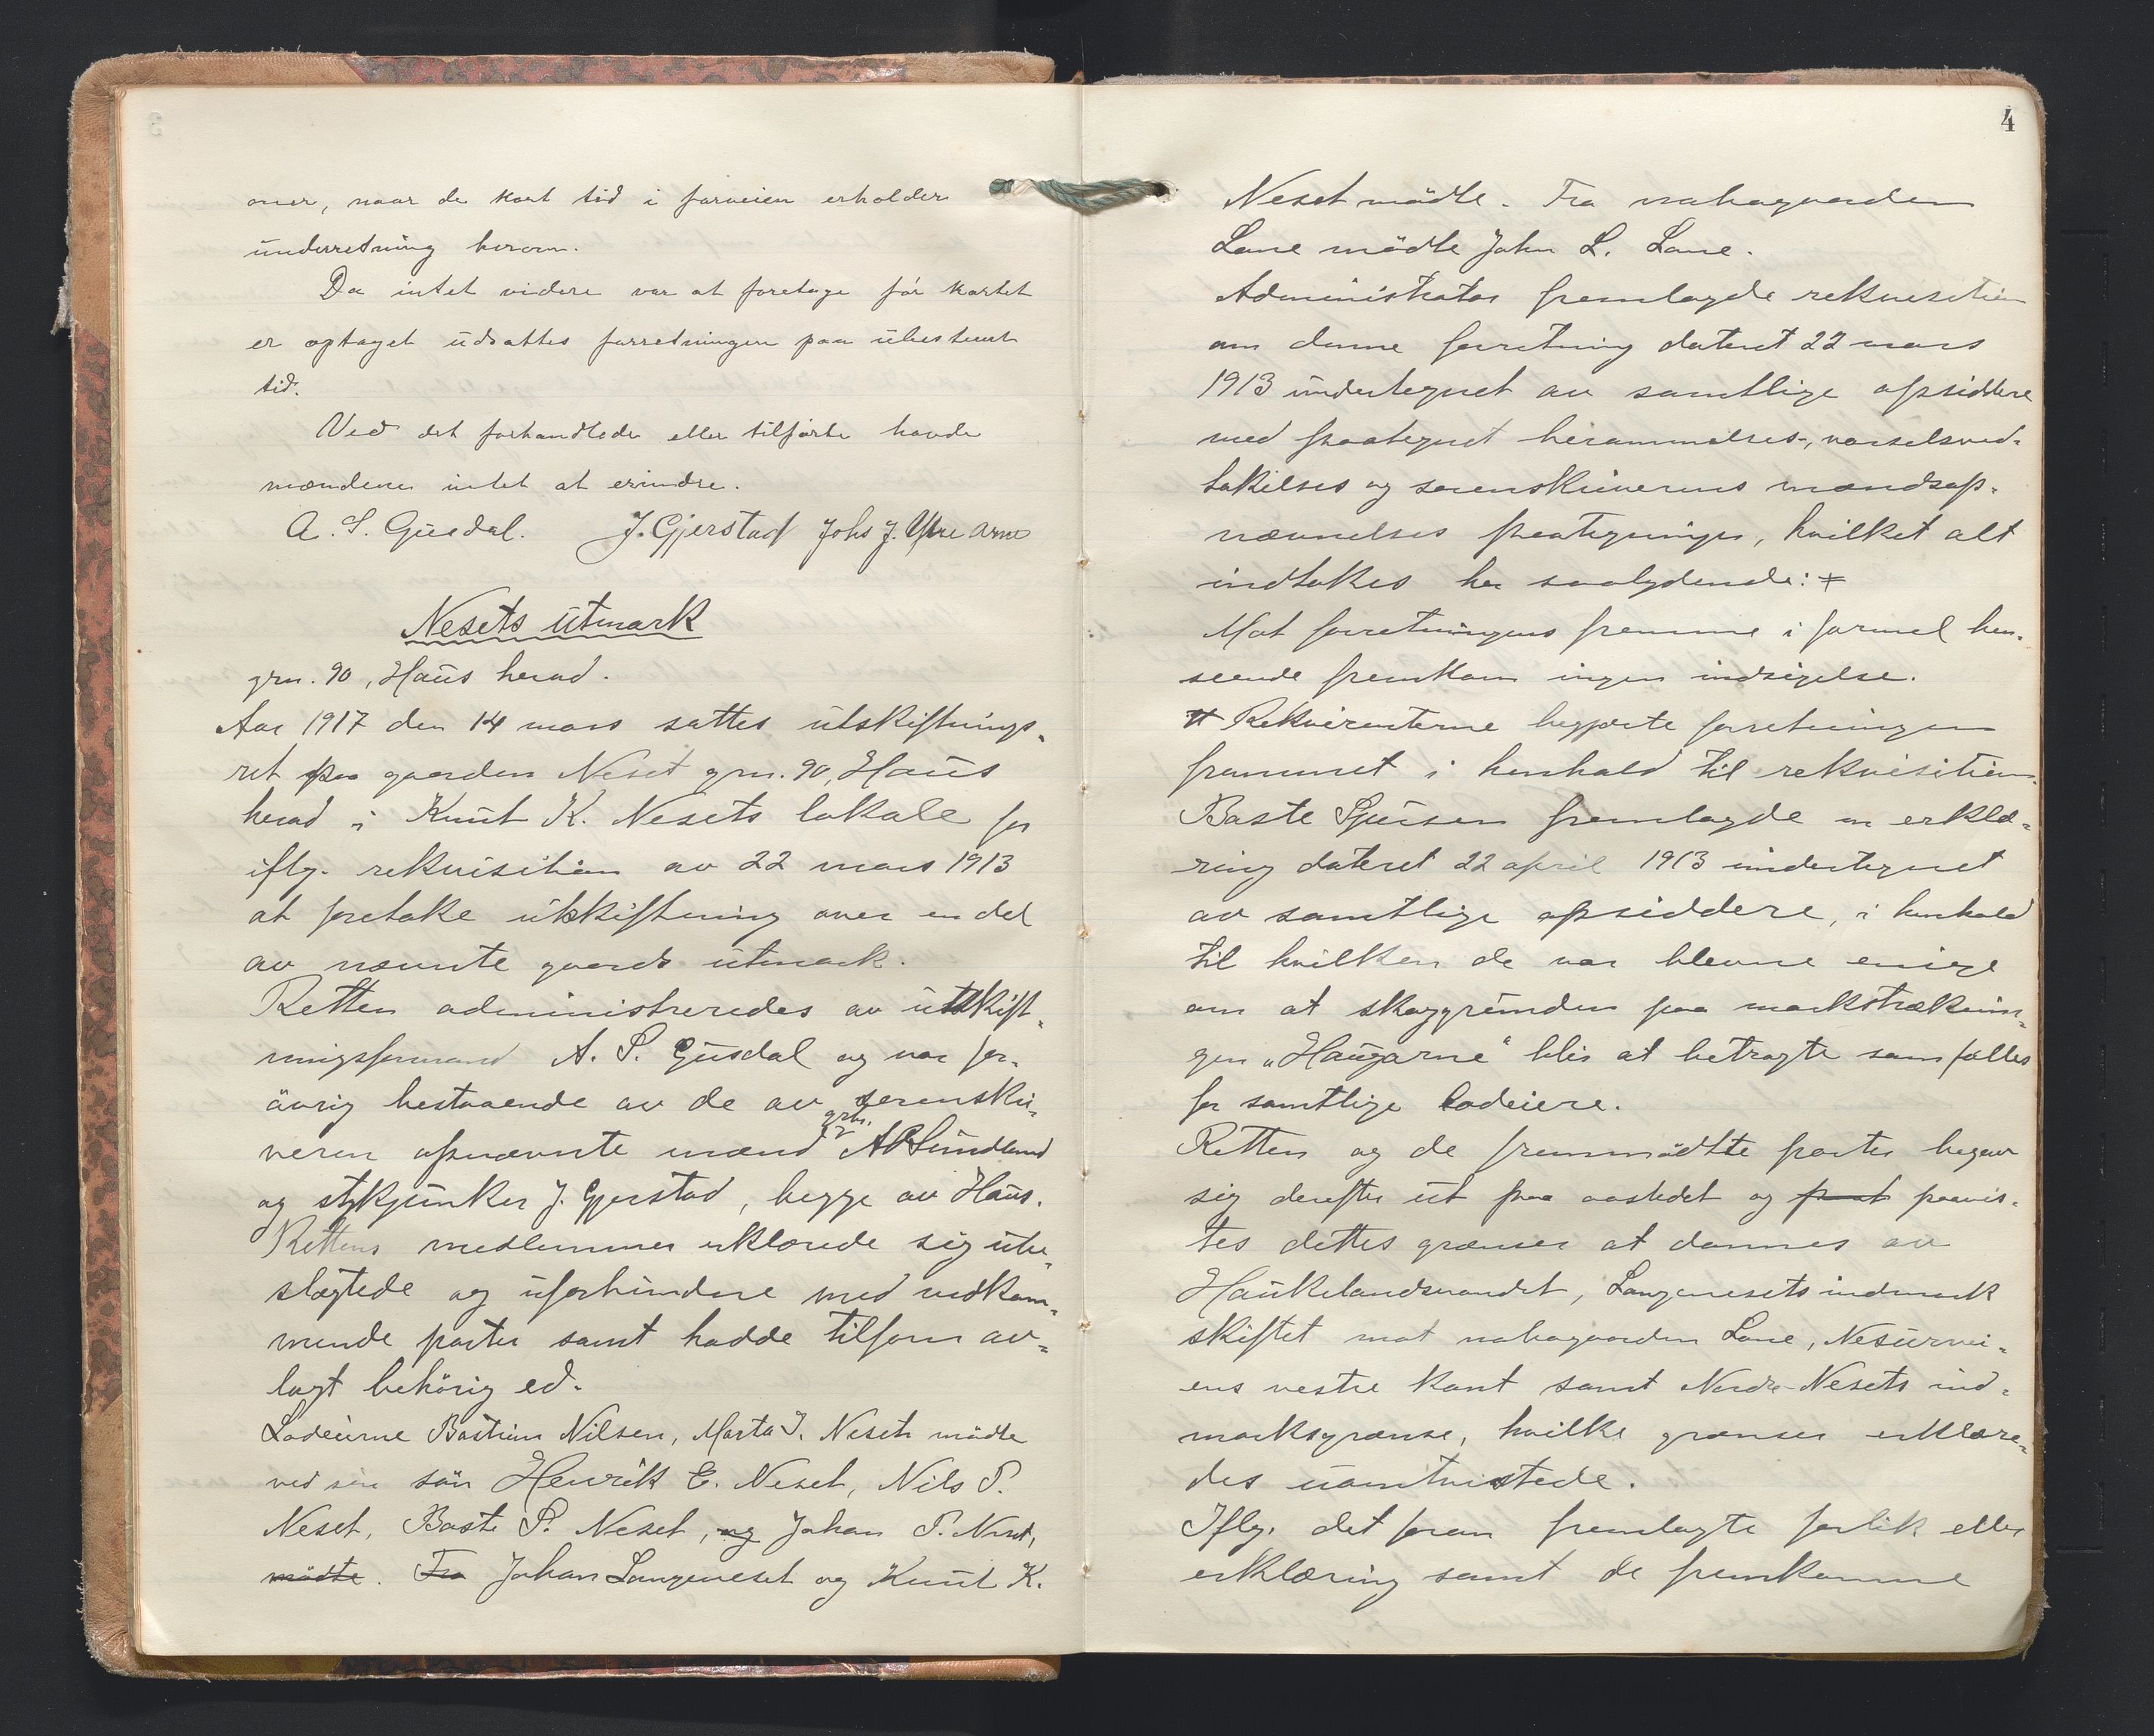 oner, naar de kort tid i forveien erholder
underretning herom.
Da intet videre var at foretage før kartet
er optaget udsattes forretningen paa ubestemt
tid.
Ved det forhandlede eller tilførte havde
mændene intet at erindre.
A. S. Gusdal. J. Gjerstad Johs J. Ytre Arne
Nesets utmark
grn. 90, Haus herad.
Aar 1917 den 14 mars sattes utskiftnings-
ret paa gaarden Neset grn. 90, Haus
herad i Knut K. Nesets lokale for
iflg. rekvisition av 22 mars 1913
at foretake utskiftning over en del
av nævnte gaards utmark.
Retten administreredes av utskift-
ningsformand A. S. Gusdal og var for-
øvrig bestaaende av de av sorenskri-
veren opnævnte mænd grbr. A Sundland
og stykjunker J. Gjerstad, begge av Haus.
Rettens medlemmer erklærede sig ube-
slægtede og uforhindrede med vedkom-
mende parter samt hadde tilforn av-
lagt behørig ed.
Lodeierne Bastian Nilsen, Marta I. Neset mødte
ved sin søn Henrik E. Neset, Nils P.
Neset, Baste P. Neset, og Johan P. Neset,
mødte. Fra Johan Langeneset og Knut K.
4
Neset mødte. Fra nabogaarden
Lone mødte John L. Lone.
Administrator fremlagde rekvisition
om denne forretning dateret 22 mars
1913 undertegnet av samtlige opsiddere
med paategnet berammelses-, varselsved-
takelses og sorenskriverens mændsop-
nævnelses paategninger, hvilket alt
indtakes her saalydende: ≠
Mot forretningens fremme i formel hen-
seende fremkom ingen indsigelse.
# Rekvirenterne begjærte forretningen
fremmet i henhold til rekvisitionen.
Baste Sjursen fremlagde en erklæ-
ring dateret 22 april 1913 undertegnet
av samtlige opsiddere, i henhold
til hvilken de var blevne enige
om at skoggrunden paa markstræknin-
gen "Haugarne" blir at betragte som fælles
for samtlige lodeiere.
Retten og de fremmødte parter begav
sig derefter ut paa aastedet og paavis-
tes dettes grænser at dannes av
Haukelandsvandet, Langenesets indmark
skiftet mot nabogaarden Lone, Nesurvei-
ens vestre kant samt Nordre Nesets ind-
marksgrænse, hvilke grænser erklære-
des uomtvistede.
Iflg. det foran fremlagte forlik eller
erklæring samt de fremkomne